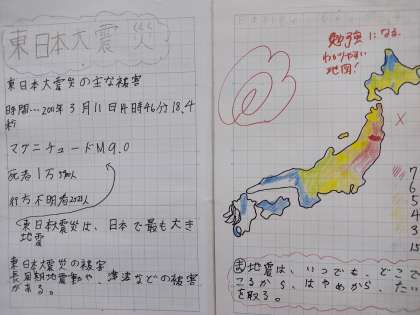 東日本大震災
東日本大震災の主な被害
時間…2011年3月11日午後14時46分18.4
秒
マグニチュードM9.0
死者1万
行方不明者
東日本大震災は、日本で最も大き
地震
東日本大震災の被害
長周期地震動や、津波などの被害
がある。
勉強になる。
わかりやすい
地図!
7
6
5
4
3
地震は、いつでも、どこで
こるから、はやめから、たい
を取る。